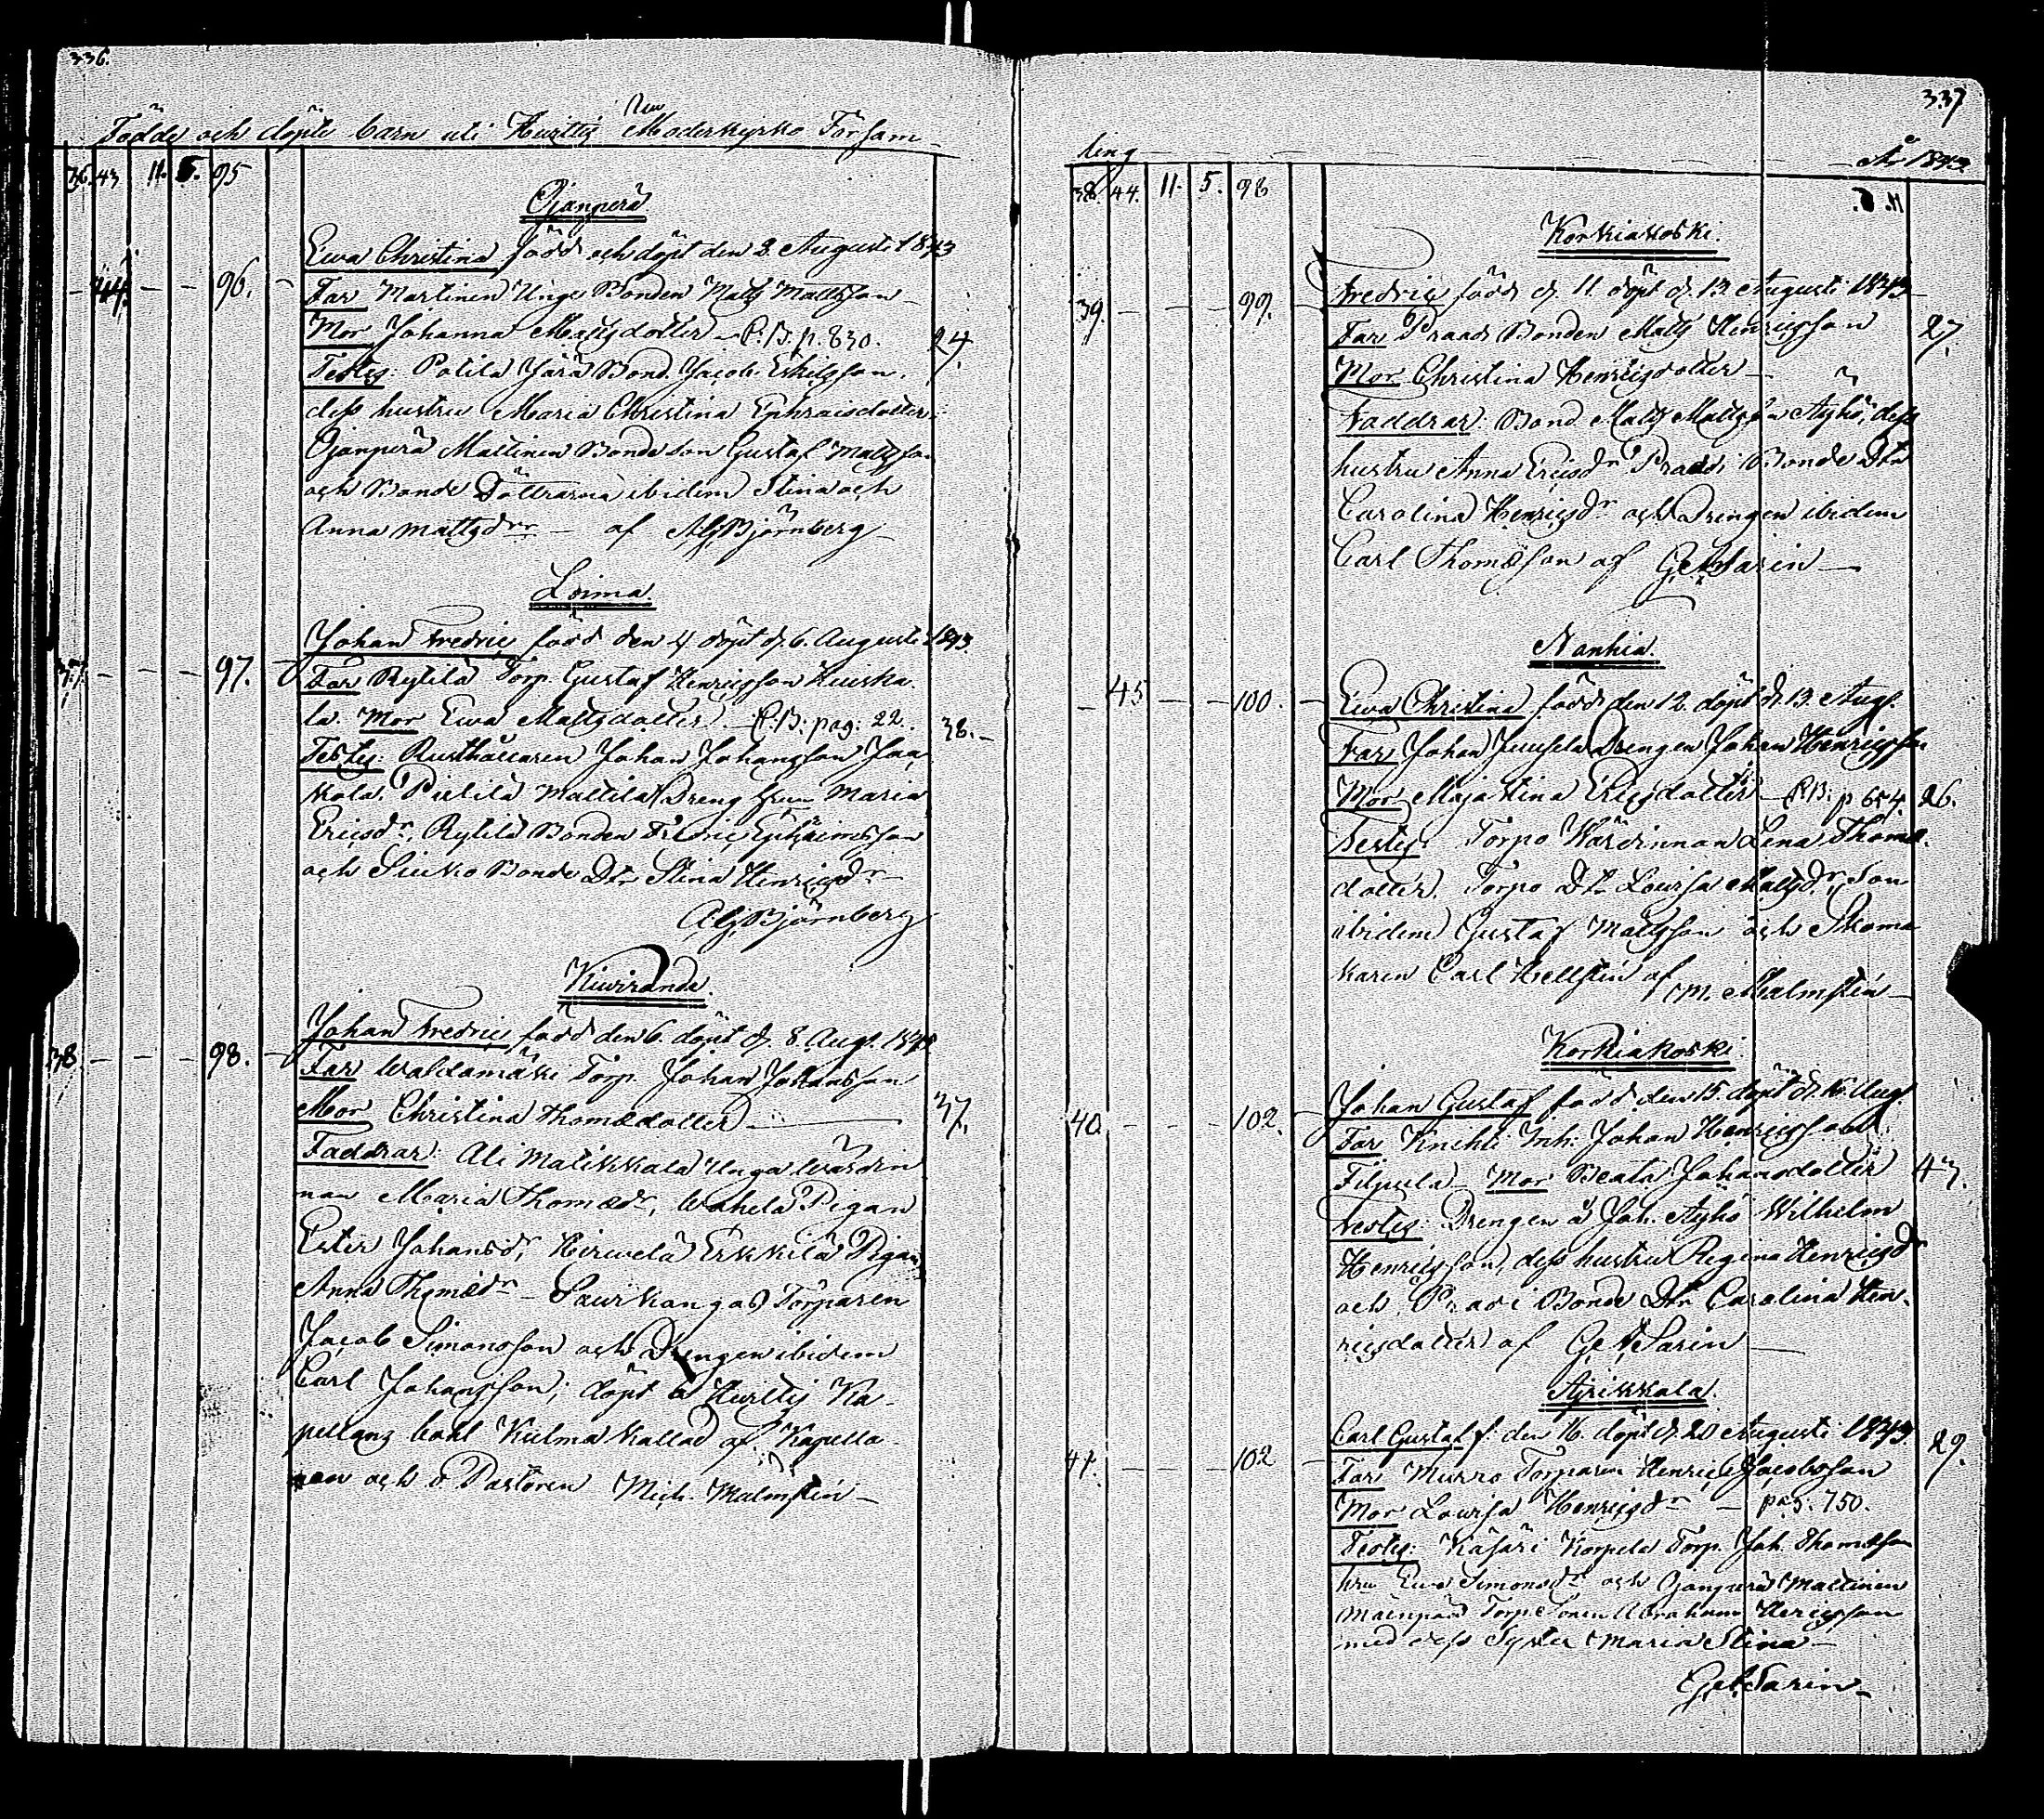 336.
Födde och döpte barn uti Huittis Moderkyrko Församling
36. 43 11. 5. 95
Ojanperä.
Ewa Christina född och döpt den 2. Augusti 1843
44. 96.
Far Martinen Unge Bonden Matts Mattsson
Mor Johanna Mattsdotter - R. B. p. 830. 24.
Testes: Polila Jära Bond. Jacob Eskilsson,
dess hustru Maria Christina Ephraisdotter,
Ojanperä Mattinen Bonde Son Gustaf Mattsson
och Bonde Döttrarna ibidem Stina och
Anna Mattsdrr - af Björnberg
Loima.
Johan Fredric född den 4 döpt d. 6. Augusti 1843.
37. 97.
Far Rytilä Torp. Gustaf Henricsson Huiska-
la. Mor Ewa Mattsdotter - R. B. pag: 22. 38.
Testes: Rusthållaren Johan Johansson Jaa-
kola, Pietilä Mattila Dreng hru Maria
Ericsdr, Rytilä Bonden Fredric Ephraimsson
och Sieko Bonde Dtr Stina Henricsdr
Björnberg
Kiwiranda.
Johan Fredric född den 6. döpt d. 8. Aug. 1843
38 98.
Far Waldamäki Torp. Johan Johansson
Mor Christina Thomædotter 37.
Faddrar: Ali Matikkala Unga Wärdin-
nan Maria Thomædr, Wahela Pigan
Ester Johansdr, Hirwelä Erkkilä Pigan
Anna Thomædr - Saurkangas Torparen
Jacob Simonsson och Drengen ibidem
Carl Johansson; döpt å Huittis Ka-
pellans bohl Kulma kallad af Kapella-
nen och v. Pastoren Mich. Malmstén
337
ling År 1843.
38. 44. 11. 5. 98 11. 5.
Korkiakoski.
Fredric född d. 11. döpt d. 13. Augusti 1843
39. 99.
Far Praari Bonden Matts Henricsson 27.
Mor Christina Henricsdotter
Faddrar: Bond. Matts Mattsson Äyhö, dess
hustru Anna Ericsdr Praari Bonde Dtr
Carolina Henricsdr och Drengen ibidem
Carl Thomæsson af Sarin
Nanhia.
45 100.
Ewa Christina född den 12. döpt d. 13. Aug.
Far Johan Juusela Drengen Johan Henricsson
Mor Maja Stina Ericsdotter - R. B. p 654 26.
Testes: Torpo Wärdinnan Lena Thomæ-
dotter. Torpo Dtr Lowisa Mattsdr, Son
ibidem Gustaf Mattsson och Skoma-
karen Carl Hellstén af M. Malmstén
Korkiakoski.
Johan Gustaf född den 15. döpt d. 16. Aug.
40. 102.
Far Knekt Inh: Johan Henricsson
Filpula - Mor Beata Johansdotter 43.
Testes: Drengen å Joh. Äyhö Wilhelm
Henricsson, dess hustru Regina Henricsdr
och Praari Bonde Dtr Carolina Hen-
ricsdotter af Sarin
Äjrikkala.
Carl Gustaf f. den 16. döpt d. 20 Augusti 1843. 29.
41. 102
Far Murro Torparen Henric Jacobsson
Mor Lowisa Henricsdr - pag. 750.
Testes: Käsäri Korpela Torp. Joh. Thomæsson
hru Ewa Simonsdr och Ojanperä Mattinen
Torp. Sonen Abraham Hericsson
med dess Syster Maria Stina
Sarin